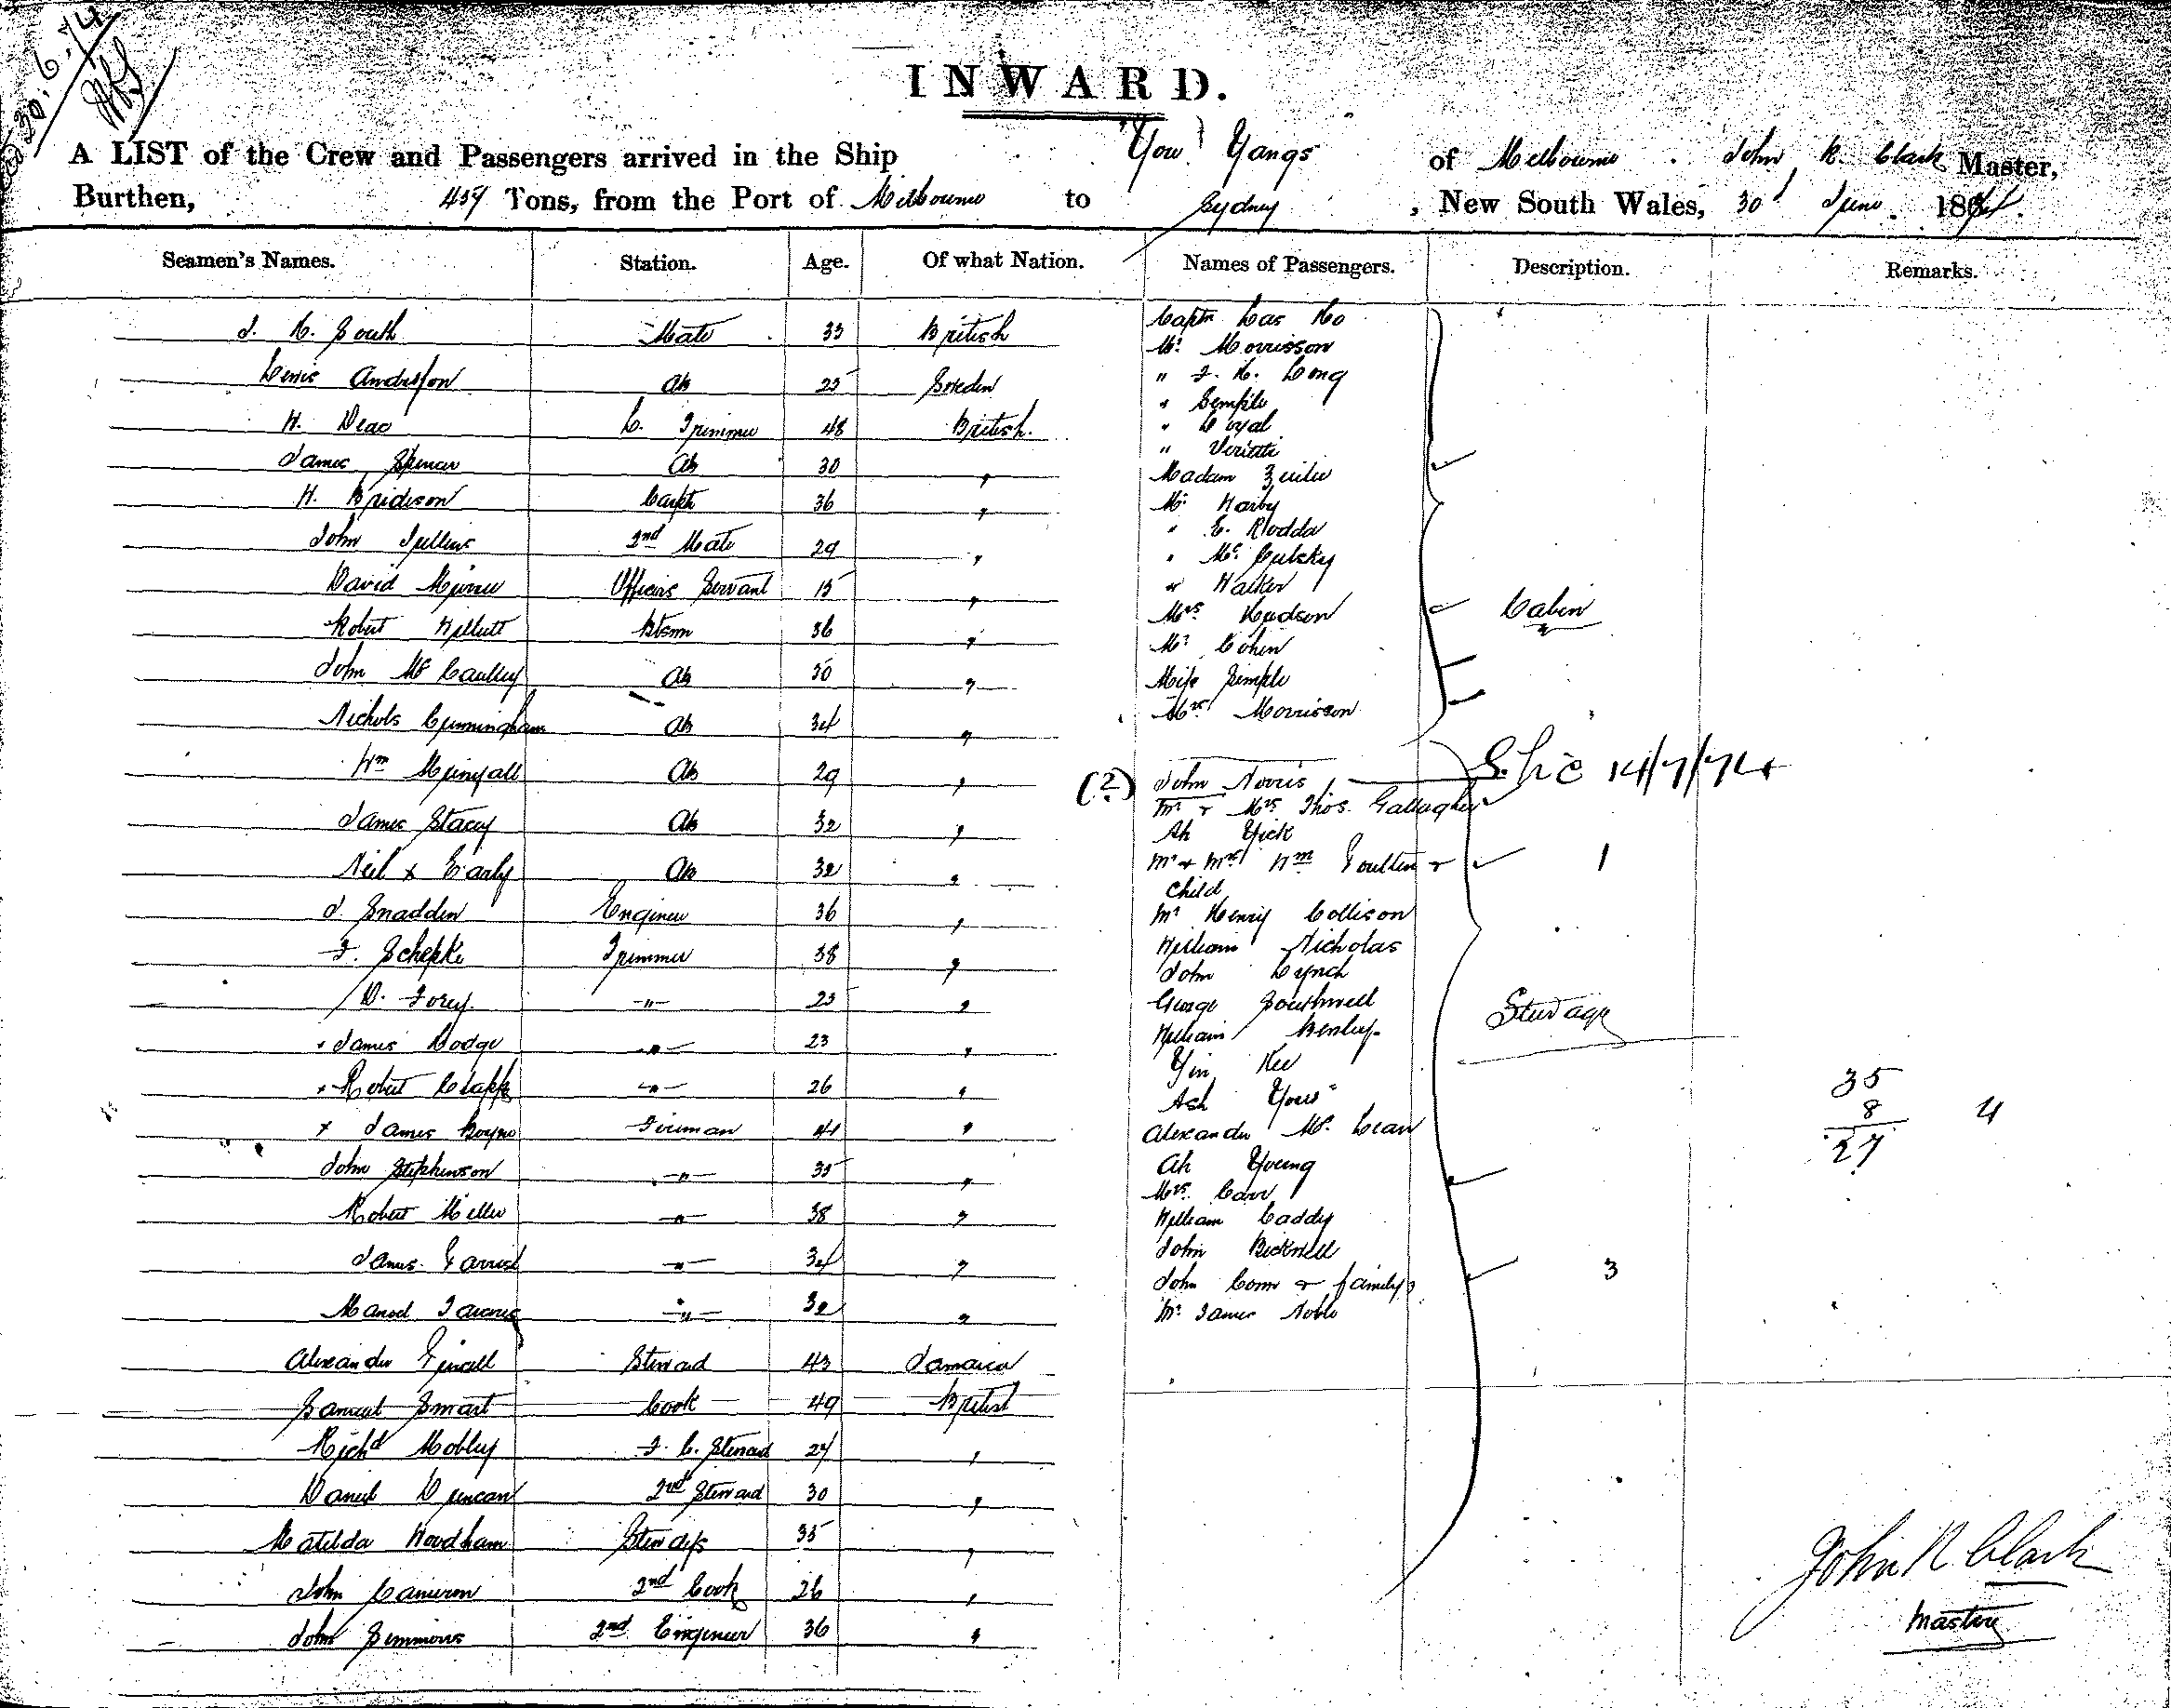 30.6.74
INWARD.
A LIST of the Crew and Passengers arrived in the Ship "You Yangs" of Melbourne. John R. Clark Master,
Burthen, 459 Tons, from the Port of Melbourne to Sydney, New South Wales, 30th June 1874.
Seamen's Names. Station. Age. Of what Nation. Names of Passengers. Description. Remarks.
South Mate 33 British
Andersson Ab 25 Sweden
H. Trimmer 48 British.
James Spencer Ab 30 "
H. Bridson Carptr 36 "
John Jullins 2nd Mate 29 "
David Officers Servant 15 "
Robert Btsmn 36 "
John McCaulley Ab 30 "
Nichols Cunningham Ab 34 "
Wm Ab 29 "
James Stacey Ab 32 "
Neil x Early Ab 32 "
J. Snadden Engineer 36 "
F. Schepke Trimmer 38 "
D. Torey. -"- 25 "
James Dodge -"- 23 "
x Robert Clapp -"- 26 "
x James Boyne Fireman 41 "
John Stephenson -"- 35 "
Robert Miller -"- 38 "
James Garrick -"- 34 "
-"- 32 "
Alexander Steward 43 Jamaica
Samuel Smart Cook 49 British
Richd Mobley F. C. Steward 24 "
Daniel Duncan 2nd Steward 30 "
Matilda Woodham Stewdess 35 "
John Cameron 2nd Cook 26 "
John Simmons 2nd Engineer 36 "
Captn
Mr. Morrisson
" Long
" Semple
" Loyal
"
Madam
Mr. Harby
" E. Rodda
" McCulsky
" Walker
Mrs Hudson
Mr. Cohen
Miss Semple
Mrs Morrisson
Cabin
(2) John Norris 14/7/74
Mr & Mrs Thos. Gallagher
Ah Yick
Mr & Mrs Wm Goulten & 1
Child
Mr Henry Collison
William Nicholas
John Lynch
George Southwell
William Henley
Yin Kee
Ash Yow
Alexander McLean
Ah Young
Mrs. Carr
William Caddy
John Bicknell
John Conn & family 3
Mr James Noble
Steerage
35
8 4
27
John R Clark
Master